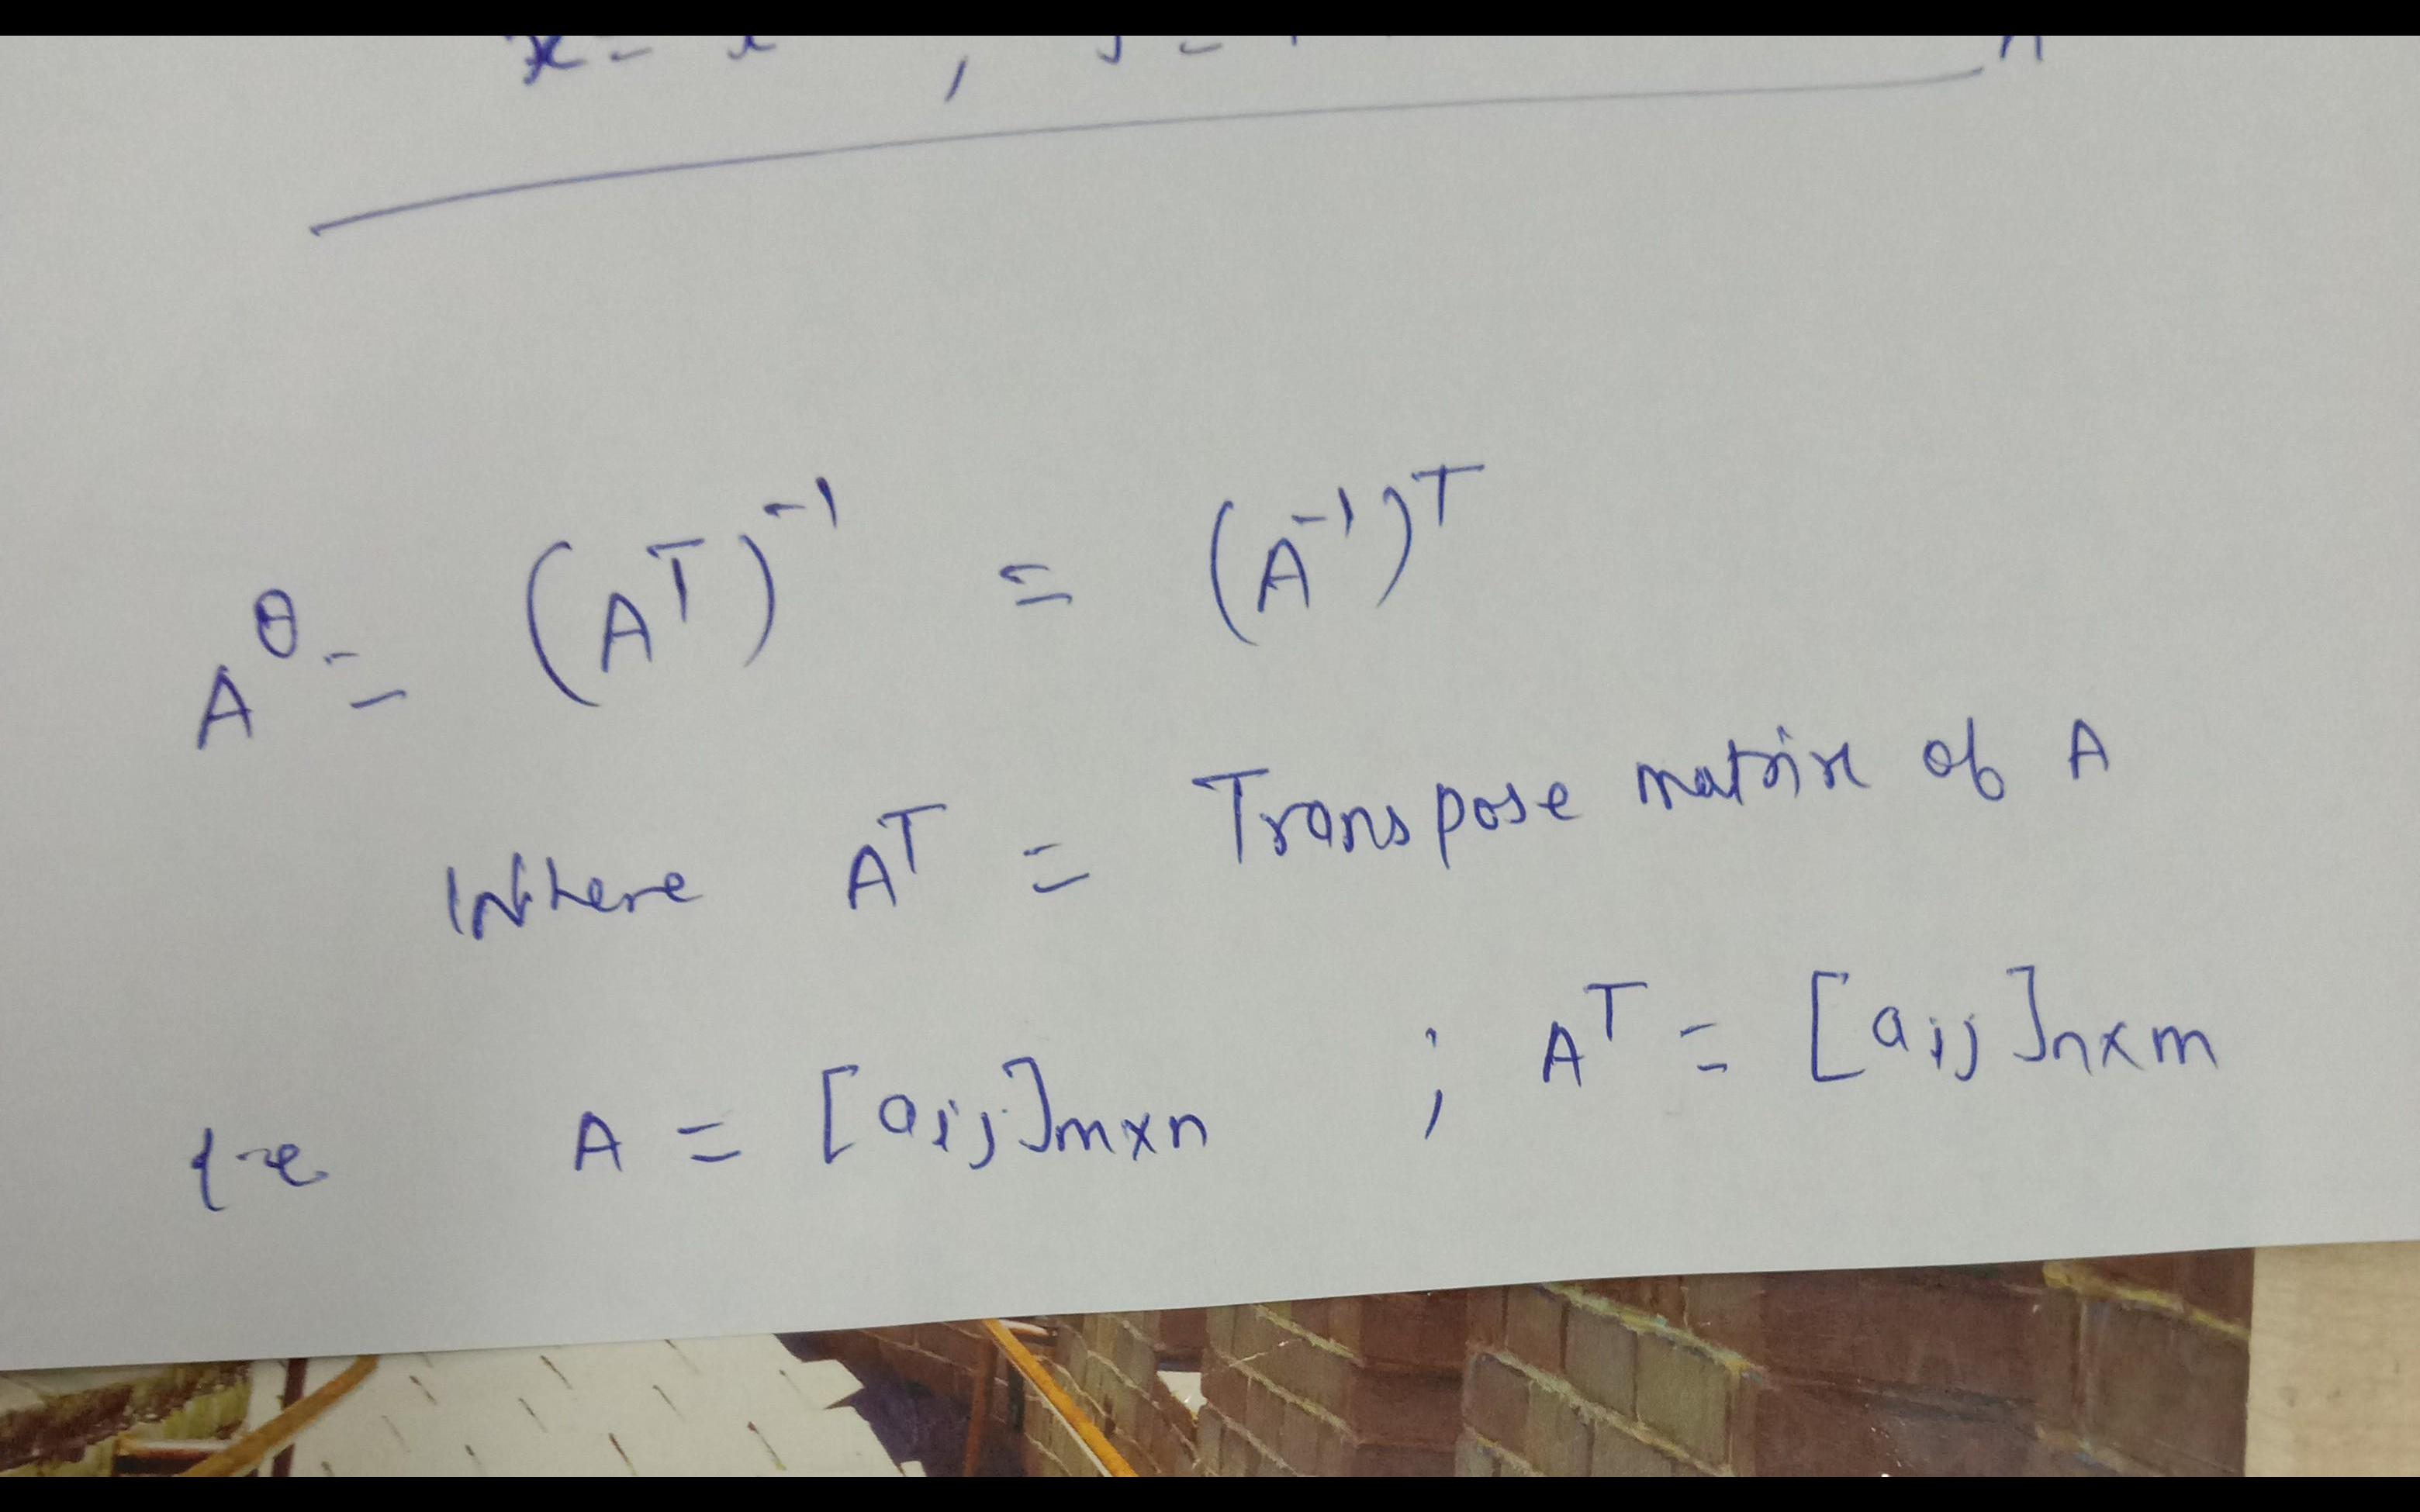 A^θ = (A^T)^-1 = (A^-1)^T
Where A^T = Transpose matrix of A
i.e A = [aij]m×n ; A^T = [aij]n×m